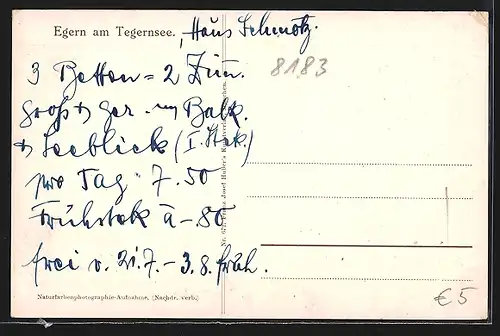 Egern am Tegernsee. Haus Schmotz.
3 Betten = 2 Zim.
8183
groß u. ger. m. Balk.
u. Seeblick (I. Stck.)
pro Tag 7.50
Frühstck à -80
frei v. 21.7. - 3.8. früh.
Naturfarbenphotographie-Aufnahme. (Nachdr. verb.)
€5